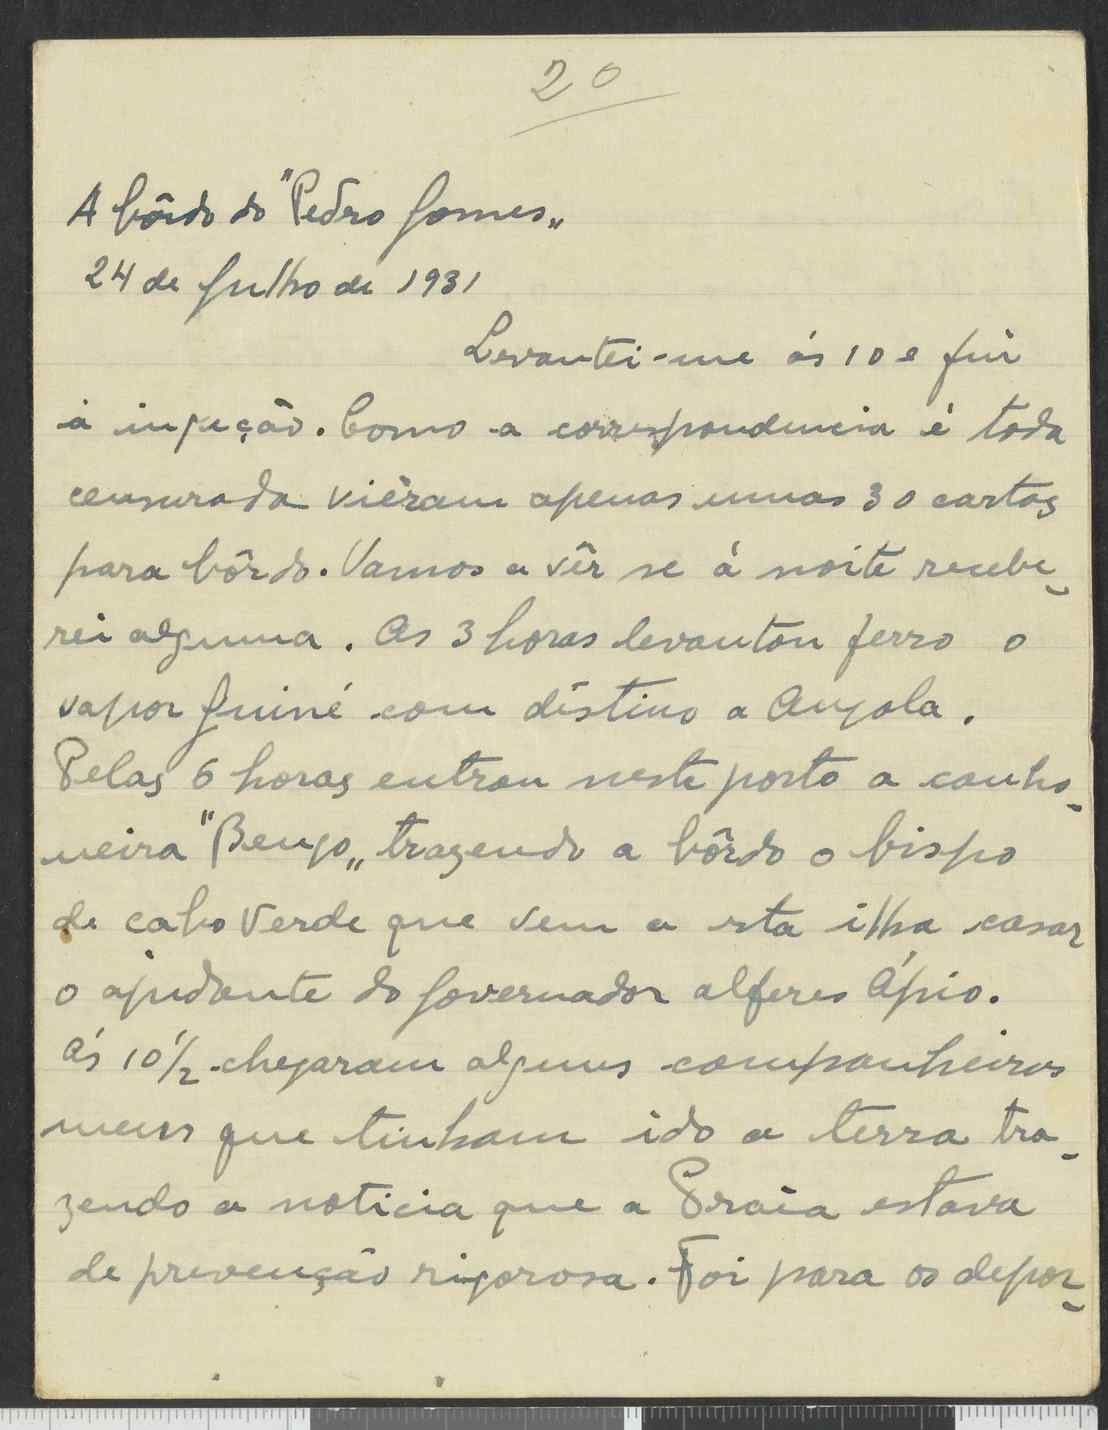 20
A bôrdo do "Pedro Gomes„
24 de Julho de 1931
Levantei-me ás 10 e fui
á injeção. Como a correspondencia é toda
censurada viéram apenas umas 30 cartas
para bôrdo. Vamos a vêr se á noite recebe-
rei alguma. As 3 horas levantou ferro o
vapor Guiné com déstino a Angola.
Pelas 6 horas entrou neste porto a canho-
neira "Bengo„ trazendo a bôrdo o bispo
de cabo Verde que vem a esta ilha casar
o ajudante do Governador alferes Ápio.
Ás 10 1/2 chegaram alguns companheiros
meus que tinham ido a terra tra-
zendo a noticia que a Praia estava
de prevenção rigorosa. Foi para os depor-